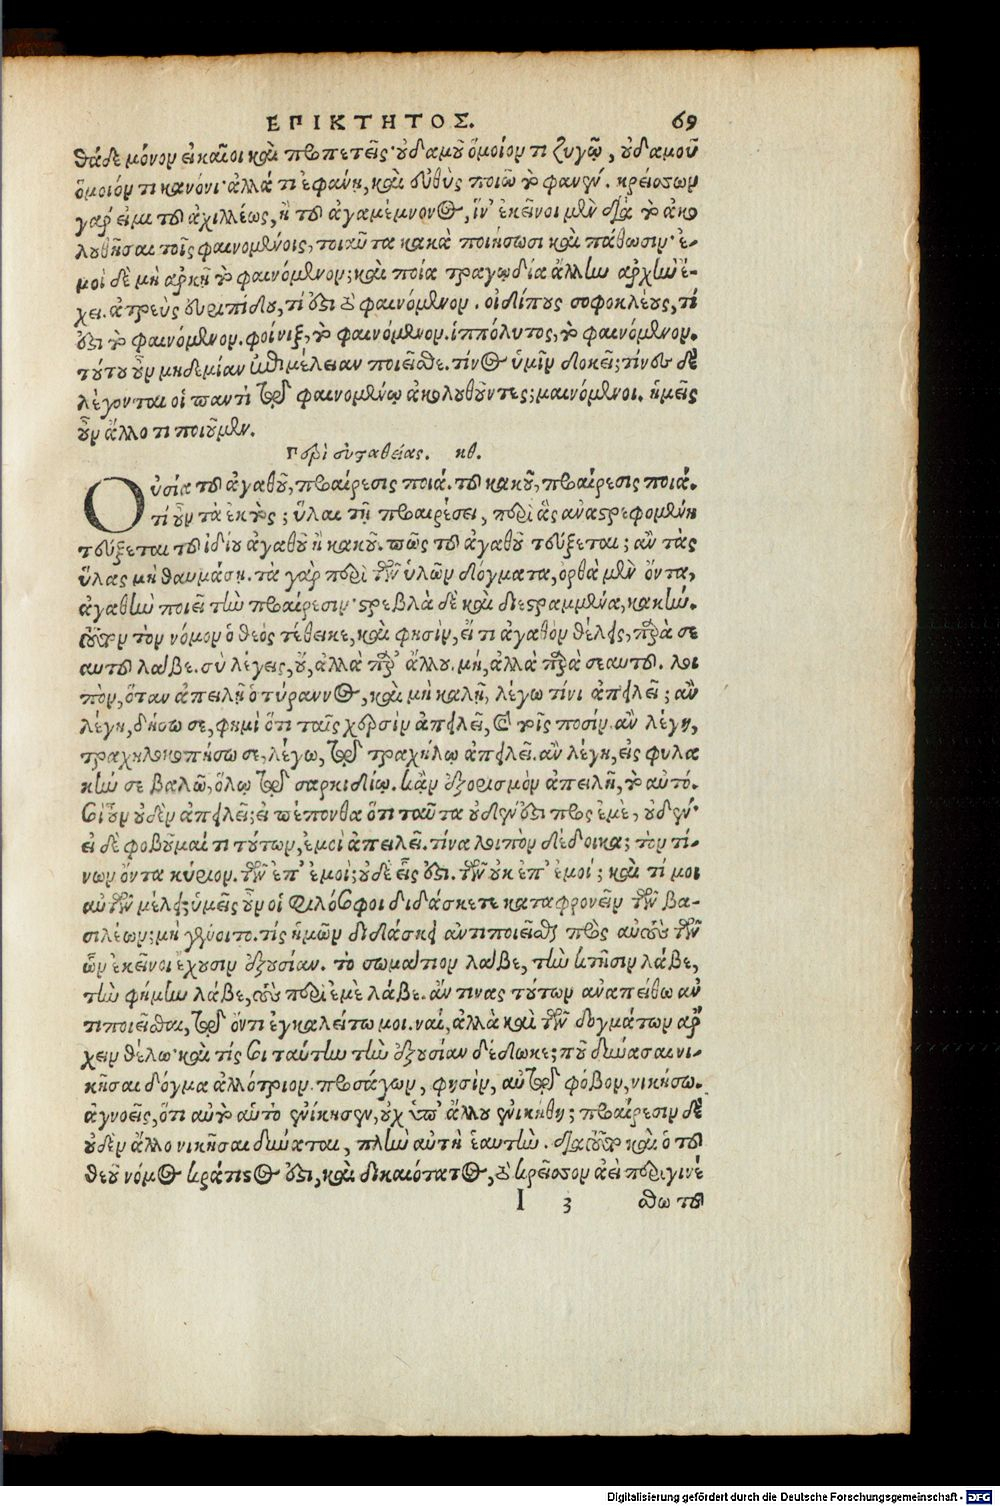 ΕΠΙΚΤΗΤΟΣ. 69
θάδε μόνον εἰκαῖοι καὶ προπετεῖς· οὐδαμοῦ ὅμοιόν τι ζυγῷ, οὐδαμοῦ
ὅμοιόν τι κανόνι· ἀλλά τι ἐφάνη, καὶ εὐθὺς ποιῶ τὸ φανέν. κρείσσων
γάρ εἰμι τοῦ ἀχιλλέως, ἢ τοῦ ἀγαμέμνονος, ἵν' ἐκεῖνοι μὲν διὰ τὸ ἀκο
λουθῆσαι τοῖς φαινομένοις, τοιαῦτα κακὰ ποιήσωσι καὶ πάθωσιν· ἐ-
μοὶ δὲ μὴ ἀρκῇ τὸ φαινόμενον; καὶ ποία τραγῳδία ἄλλην ἀρχὴν ἔ-
χει. ἀτρεὺς εὐριπίδου, τί ἐστι τὸ φαινόμενον. οἰδίπους σοφοκλέους, τί
ἐστι τὸ φαινόμενον. φοίνιξ, τὸ φαινόμενον. ἱππόλυτος, τὸ φαινόμενον.
τούτου οὖν μηδεμίαν ἐπιμέλειαν ποιεῖσθε. τίνος ὑμῖν δοκεῖ; τίνες δὲ
λέγονται οἱ παντὶ τῷ φαινομένῳ ἀκολουθοῦντες; μαινόμενοι. ἡμεῖς
οὖν ἄλλο τι ποιοῦμεν.
Περὶ εὐσταθείας. κθ.
Οὐσία τοῦ ἀγαθοῦ, προαίρεσις ποιά. τοῦ κακοῦ, προαίρεσις ποιά.
τί οὖν τὰ ἐκτός; ὗλαι τῇ προαιρέσει, περὶ ἃς ἀναστρεφομένη
τεύξεται τοῦ ἰδίου ἀγαθοῦ ἢ κακοῦ. πῶς τοῦ ἀγαθοῦ τεύξεται; ἂν τὰς
ὕλας μὴ θαυμάσῃ. τὰ γὰρ περὶ τῶν ὑλῶν δόγματα, ὀρθὰ μὲν ὄντα,
ἀγαθὴν ποιεῖ τὴν προαίρεσιν· στρεβλὰ δὲ καὶ διεστραμμένα, κακήν.
τοῦτον τὸν νόμον ὁ θεὸς τέθεικε, καὶ φησὶν, εἴ τι ἀγαθὸν θέλεις, παρὰ σε
αυτοῦ λάβε. σὺ λέγεις, οὔ, ἀλλὰ παρ' ἄλλου. μή, ἀλλὰ παρὰ σεαυτοῦ. λοι
πὸν, ὅταν ἀπειλῇ ὁ τύραννος, καὶ μὴ καλῇ, λέγω τίνι ἀπειλεῖ; ἂν
λέγῃ, δήσω σε, φημὶ ὅτι ταῖς χερσὶν ἀπειλεῖ, καὶ τοῖς ποσίν. ἂν λέγῃ,
τραχηλοκοπήσω σε, λέγω, τῷ τραχήλῳ ἀπειλεῖ. ἂν λέγῃ, εἰς φυλα
κήν σε βαλῶ, ὅλῳ τῷ σαρκιδίῳ. κἂν ἐξορισμὸν ἀπειλῇ, τὸ αὐτό.
σοὶ οὖν οὐδὲν ἀπειλεῖ; εἰ πέπονθα ὅτι ταῦτα οὐδέν ἐστι πρὸς ἐμὲ, οὐδέν·
εἰ δὲ φοβοῦμαί τι τούτων, ἐμοὶ ἀπειλεῖ. τίνα λοιπὸν δέδοικα; τὸν τί-
νων ὄντα κύριον. τῶν ἐπ' ἐμοί; οὐδὲ εἷς ἐστι. τῶν οὐκ ἐπ' ἐμοί; καὶ τί μοι
αὐτῶν μέλει; ὑμεῖς οὖν οἱ φιλόσοφοι διδάσκετε καταφρονεῖν τῶν βα-
σιλέων; μὴ γένοιτο. τίς ἡμῶν διδάσκει ἀντιποιεῖσθαι πρὸς αὐτοὺς τῶν
ὧν ἐκεῖνοι ἔχουσιν ἐξουσίαν. τὸ σωμάτιον λάβε, τὴν κτῆσιν λάβε,
τὴν φήμην λάβε, τοὺς περὶ ἐμὲ λάβε. ἄν τινας τούτων ἀναπείθω ἀν
τιποιεῖσθαι, τῷ ὄντι ἐγκαλείτω μοι. ναί, ἀλλὰ καὶ τῶν δογμάτων ἄρ
χειν θέλω· καὶ τίς σοι ταύτην τὴν ἐξουσίαν δέδωκε; ποῦ δύνασαι νι-
κῆσαι δόγμα ἀλλότριον. προσάγων, φησὶν, αὐτῷ φόβον, νικήσω.
ἀγνοεῖς, ὅτι αὐτὸ αὑτὸ ἐνίκησεν, οὐχ ὑπ' ἄλλου ἐνικήθη; προαίρεσιν δὲ
οὐδὲν ἄλλο νικῆσαι δύναται, πλὴν αὐτὴ ἑαυτήν. διὰ τοῦτο καὶ ὁ τοῦ
θεοῦ νόμος κράτιστός ἐστι, καὶ δικαιότατος, τὸ κρεῖσσον ἀεὶ περιγινέ
I 3 σθω τοῦ
Digitalisierung gefördert durch die Deutsche Forschungsgemeinschaft - DFG